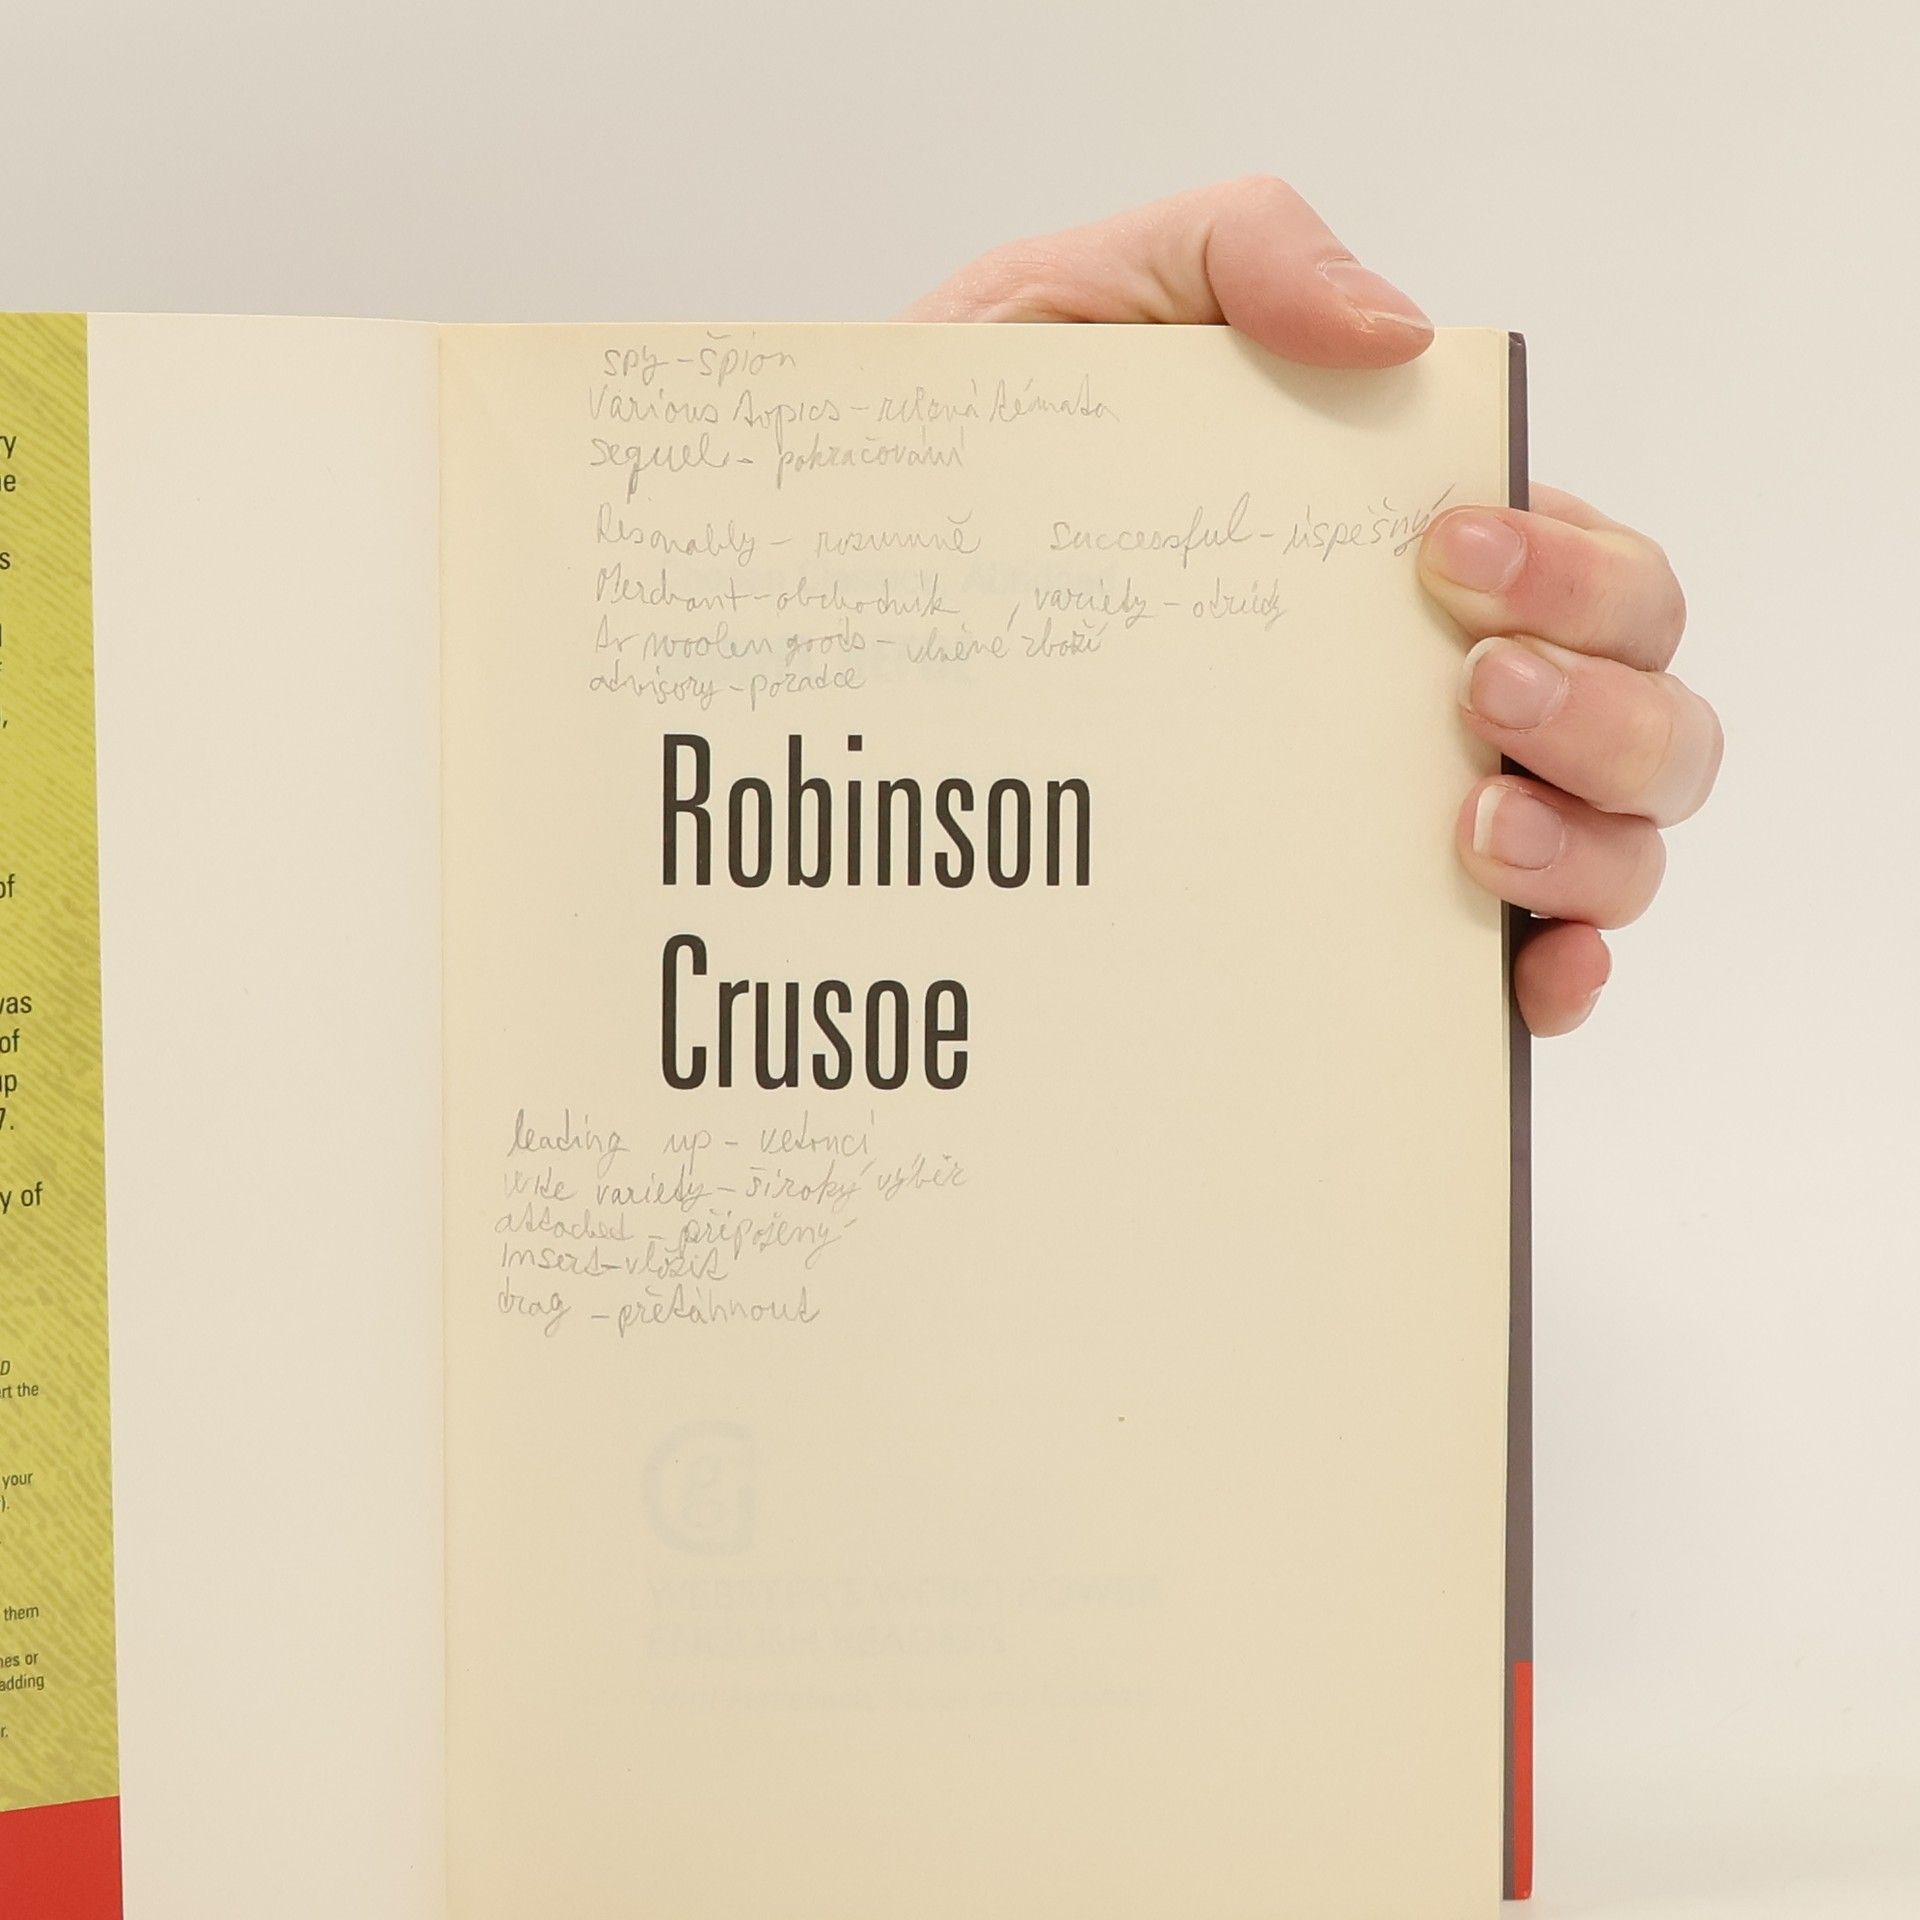 ry
ne
s
of
vas
of
up
7.
y of
D
rt the
your
).
them
nes or
adding
r.
spy - špion
Various topics - různá témata
sequel - pokračování
Resonably - rozumně successful - úspěšný
Merchant - obchodník , variety - odrůdy
woolen goods - vlněné zboží
advisory - poradce
Robinson
Crusoe
leading up -
variety - široký výběr
attached - připojený
Insert - vložit
drag - přetáhnout